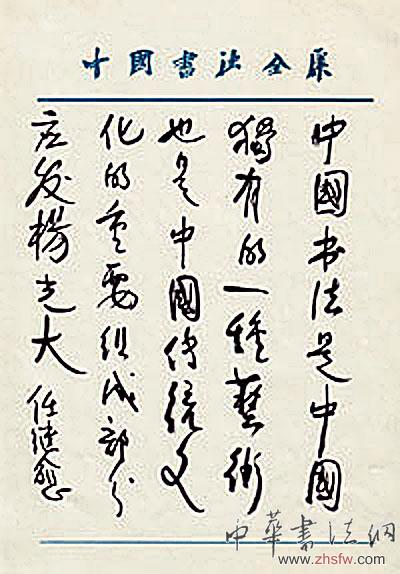 中國书法全集
中國书法是中國
獨有的一種藝術
也是中國传统文
化的重要组成部分
应发揚光大 任继愈
中華書法網
www.zhsfw.com